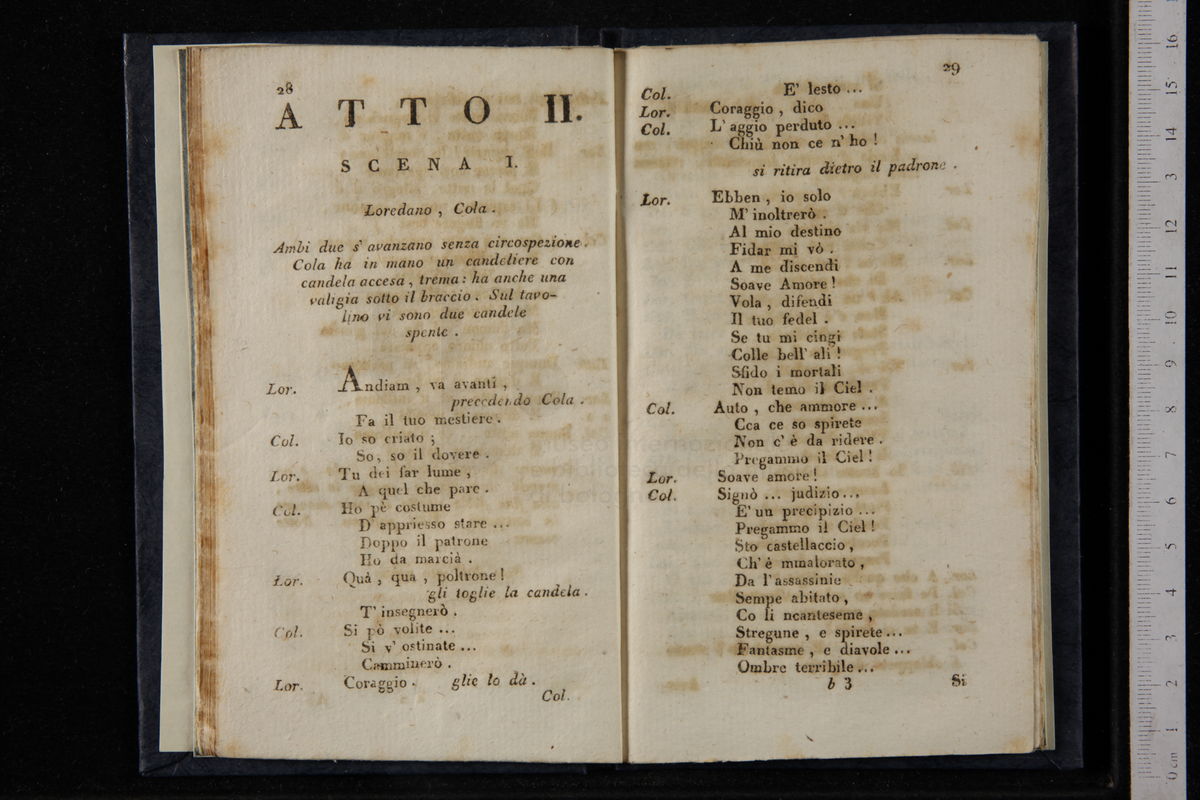 28
ATTO II.
SCENA I.
Loredano , Cola .
Ambi due s' avanzano senza circospezione .
Cola ha in mano un candeliere con
candela accesa , trema : ha anche una
valigia sotto il braccio . Sul tavo-
lino vi sono due candele
spente .
Lor. Andiam , va avanti ,
precedendo Cola .
Fa il tuo mestiere .
Col. Io so criato ;
So, so il dovere .
Lor. Tu dei far lume ,
A quel che pare .
Col. Ho pè costume
D' appriesso stare ...
Doppo il patrone
Ho da marcià .
Lor. Quà , quà , poltrone !
gli toglie la candela .
T' insegnerò .
Col. Si pò volite ...
Si v' ostinate ...
Camminerò .
Lor. Coraggio . glie lo dà .
Col.
29
Col. E' lesto ...
Lor. Coraggio , dico
Col. L' aggio perduto ...
Chiù non ce n' ho !
si ritira dietro il padrone .
Lor. Ebben , io solo
M' inoltrerò .
Al mio destino
Fidar mi vò .
A me discendi
Soave Amore !
Vola , difendi
Il tuo fedel .
Se tu mi cingi
Colle bell' ali !
Sfido i mortali
Non temo il Ciel .
Col. Auto , che ammore ...
Cca ce so spirete
Non c' è da ridere .
Pregammo il Ciel !
Lor. Soave amore !
Col. Signò ... judizio ...
E' un precipizio ...
Pregammo il Ciel !
Sto castellaccio ,
Ch' è mmalorato ,
Da l' assassinie
Sempe abitato ,
Co li ncanteseme ,
Stregune , e spirete ...
Fantasme , e diavole ...
Ombre terribile ...
b 3 Si
0 cm 1 2 3 4 5 6 7 8 9 10 11 12 13 14 15 16